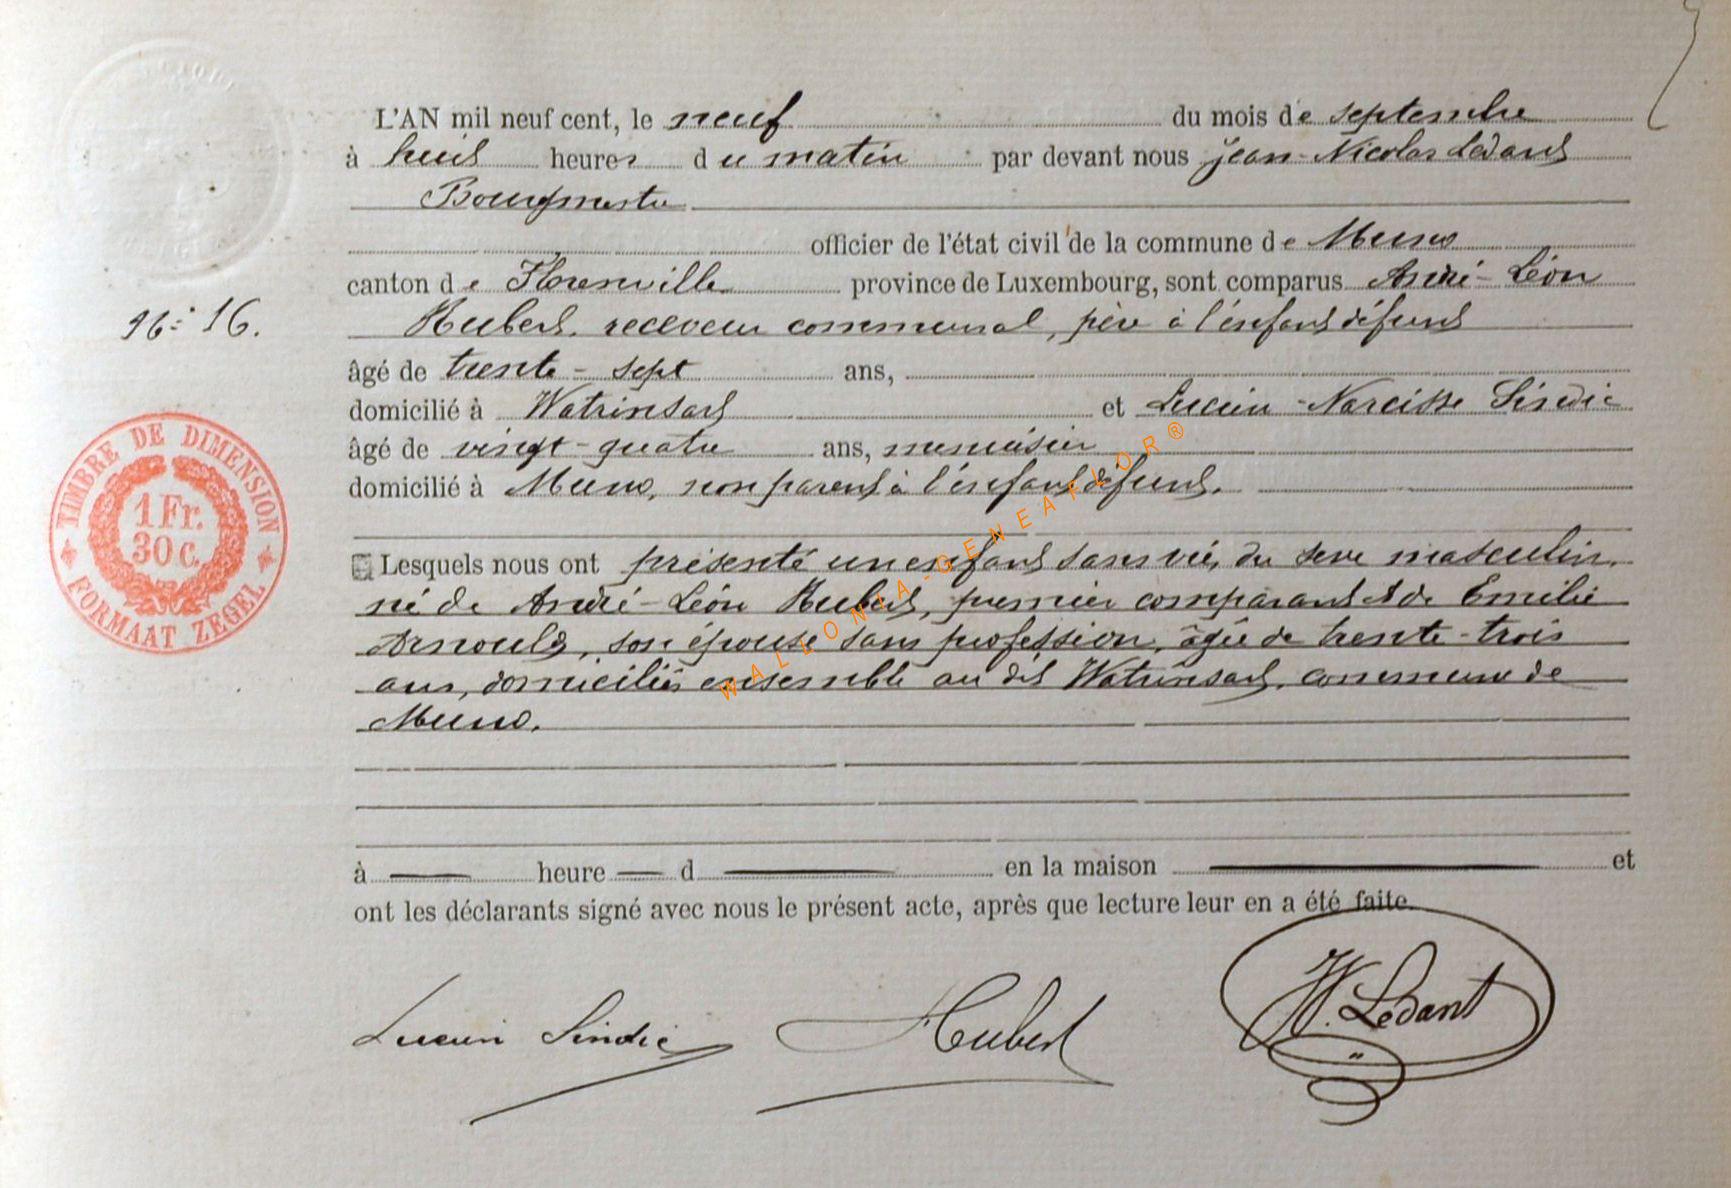 L'AN mil neuf cent, le neuf du mois de septembre
à huit heures du matin par devant nous Jean-Nicolas Ledant
Bourgmestre
officier de l'état civil de la commune de Muno
canton de Florenville province de Luxembourg, sont comparus André-Léon
Nº 16.
Hubert, receveur communal, père à l'enfant défunt
âgé de trente-sept ans,
domicilié à Watrinsart et Lucien-Narcisse Sindic
âgé de vingt-quatre ans, menuisier
domicilié à Muno, non parent à l'enfant défunt.
Lesquels nous ont présenté un enfant sans vie, du sexe masculin,
né de André-Léon Hubert, premier comparant & de Emilie
Arnould, son épouse sans profession, âgée de trente-trois
ans, domiciliés ensemble au dit Watrinsart, commune de
Muno.
à heure d en la maison et
ont les déclarants signé avec nous le présent acte, après que lecture leur en a été faite.
Lucien Sindic Hubert N. Ledant
TIMBRE DE DIMENSION
1 Fr.
30 c.
FORMAAT ZEGEL
WALLONIA-GENEAFLOR®